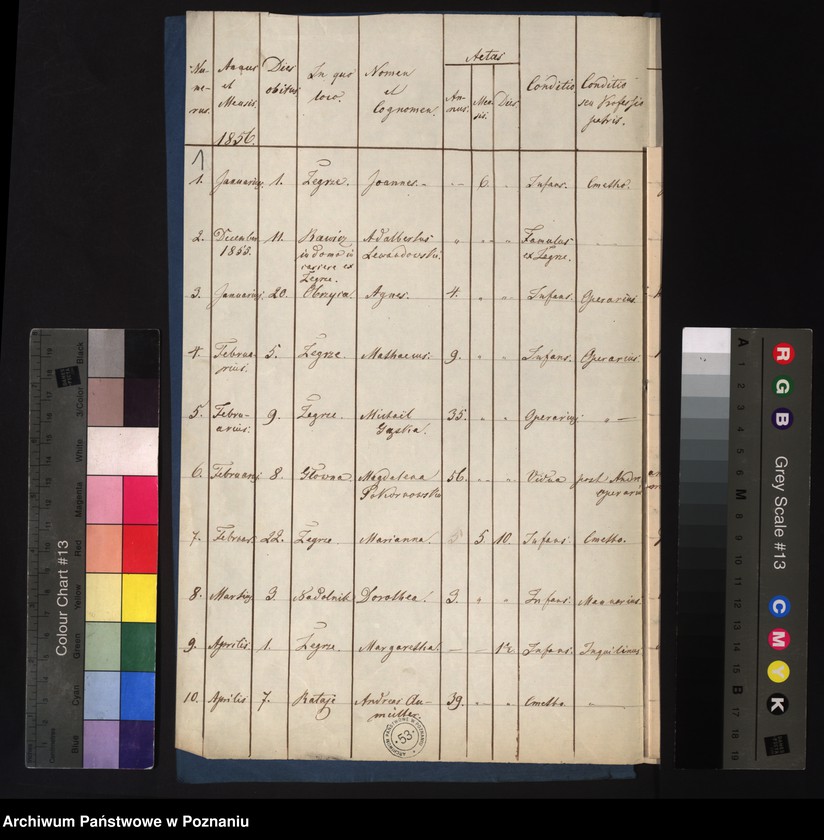 Nu-
me-
rus.
Annus
et
Mensis.
1856.
Dies
obitus
In quo
loco.
Nomen
et
Cognomen.
Aetas
An-
nus.
Men-
sis.
Dies
Conditio
Conditio
seu Professio
patris.
1
1. Januarius. 1. Zegrze. Joannes. - - - 6. " Infans. Cmetho.
2. December 11. Adalbertus " " " Famulus
1855. in domo Lewandowski. ex Zegrze.
Zegrze.
3. Januarius. 20. Obrzyca. Agnes. 4. " " Infans. Operarius
4. Februa- 5. Zegrze Mathaeus. 9. " " Infans. Operarius.
rius.
5. Febru- 9. Zegrze. Michael 35. " " Operarius. " -
arius.
6. Februarius 8. Głowna. Magdalena 56. " " Vidua post Andr
operarii
7. Februar. 22. Zegrze. Marianna. 5 5. 10. Infans. Cmetho.
8. Martius 3. Dorothea. 3. " " Infans.
9. Aprilis. 1. Zegrze. Margaretha. - - Infans. Inquilinus
10. Aprilis 7. Rataje Andreas 39. " " Cmetho. "
ARCHIWUM PAŃSTWOWE W POZNANIU
53
Colour Chart #13
Blue
Cyan
Green
Yellow
Red
Magenta
White
3/Color
Black
Grey Scale #13
R
G
B
C
M
Y
K
A 1 2 3 4 5 6 M 8 9 10 11 12 13 14 15 B 17 18 19
Archiwum Państwowe w Poznaniu